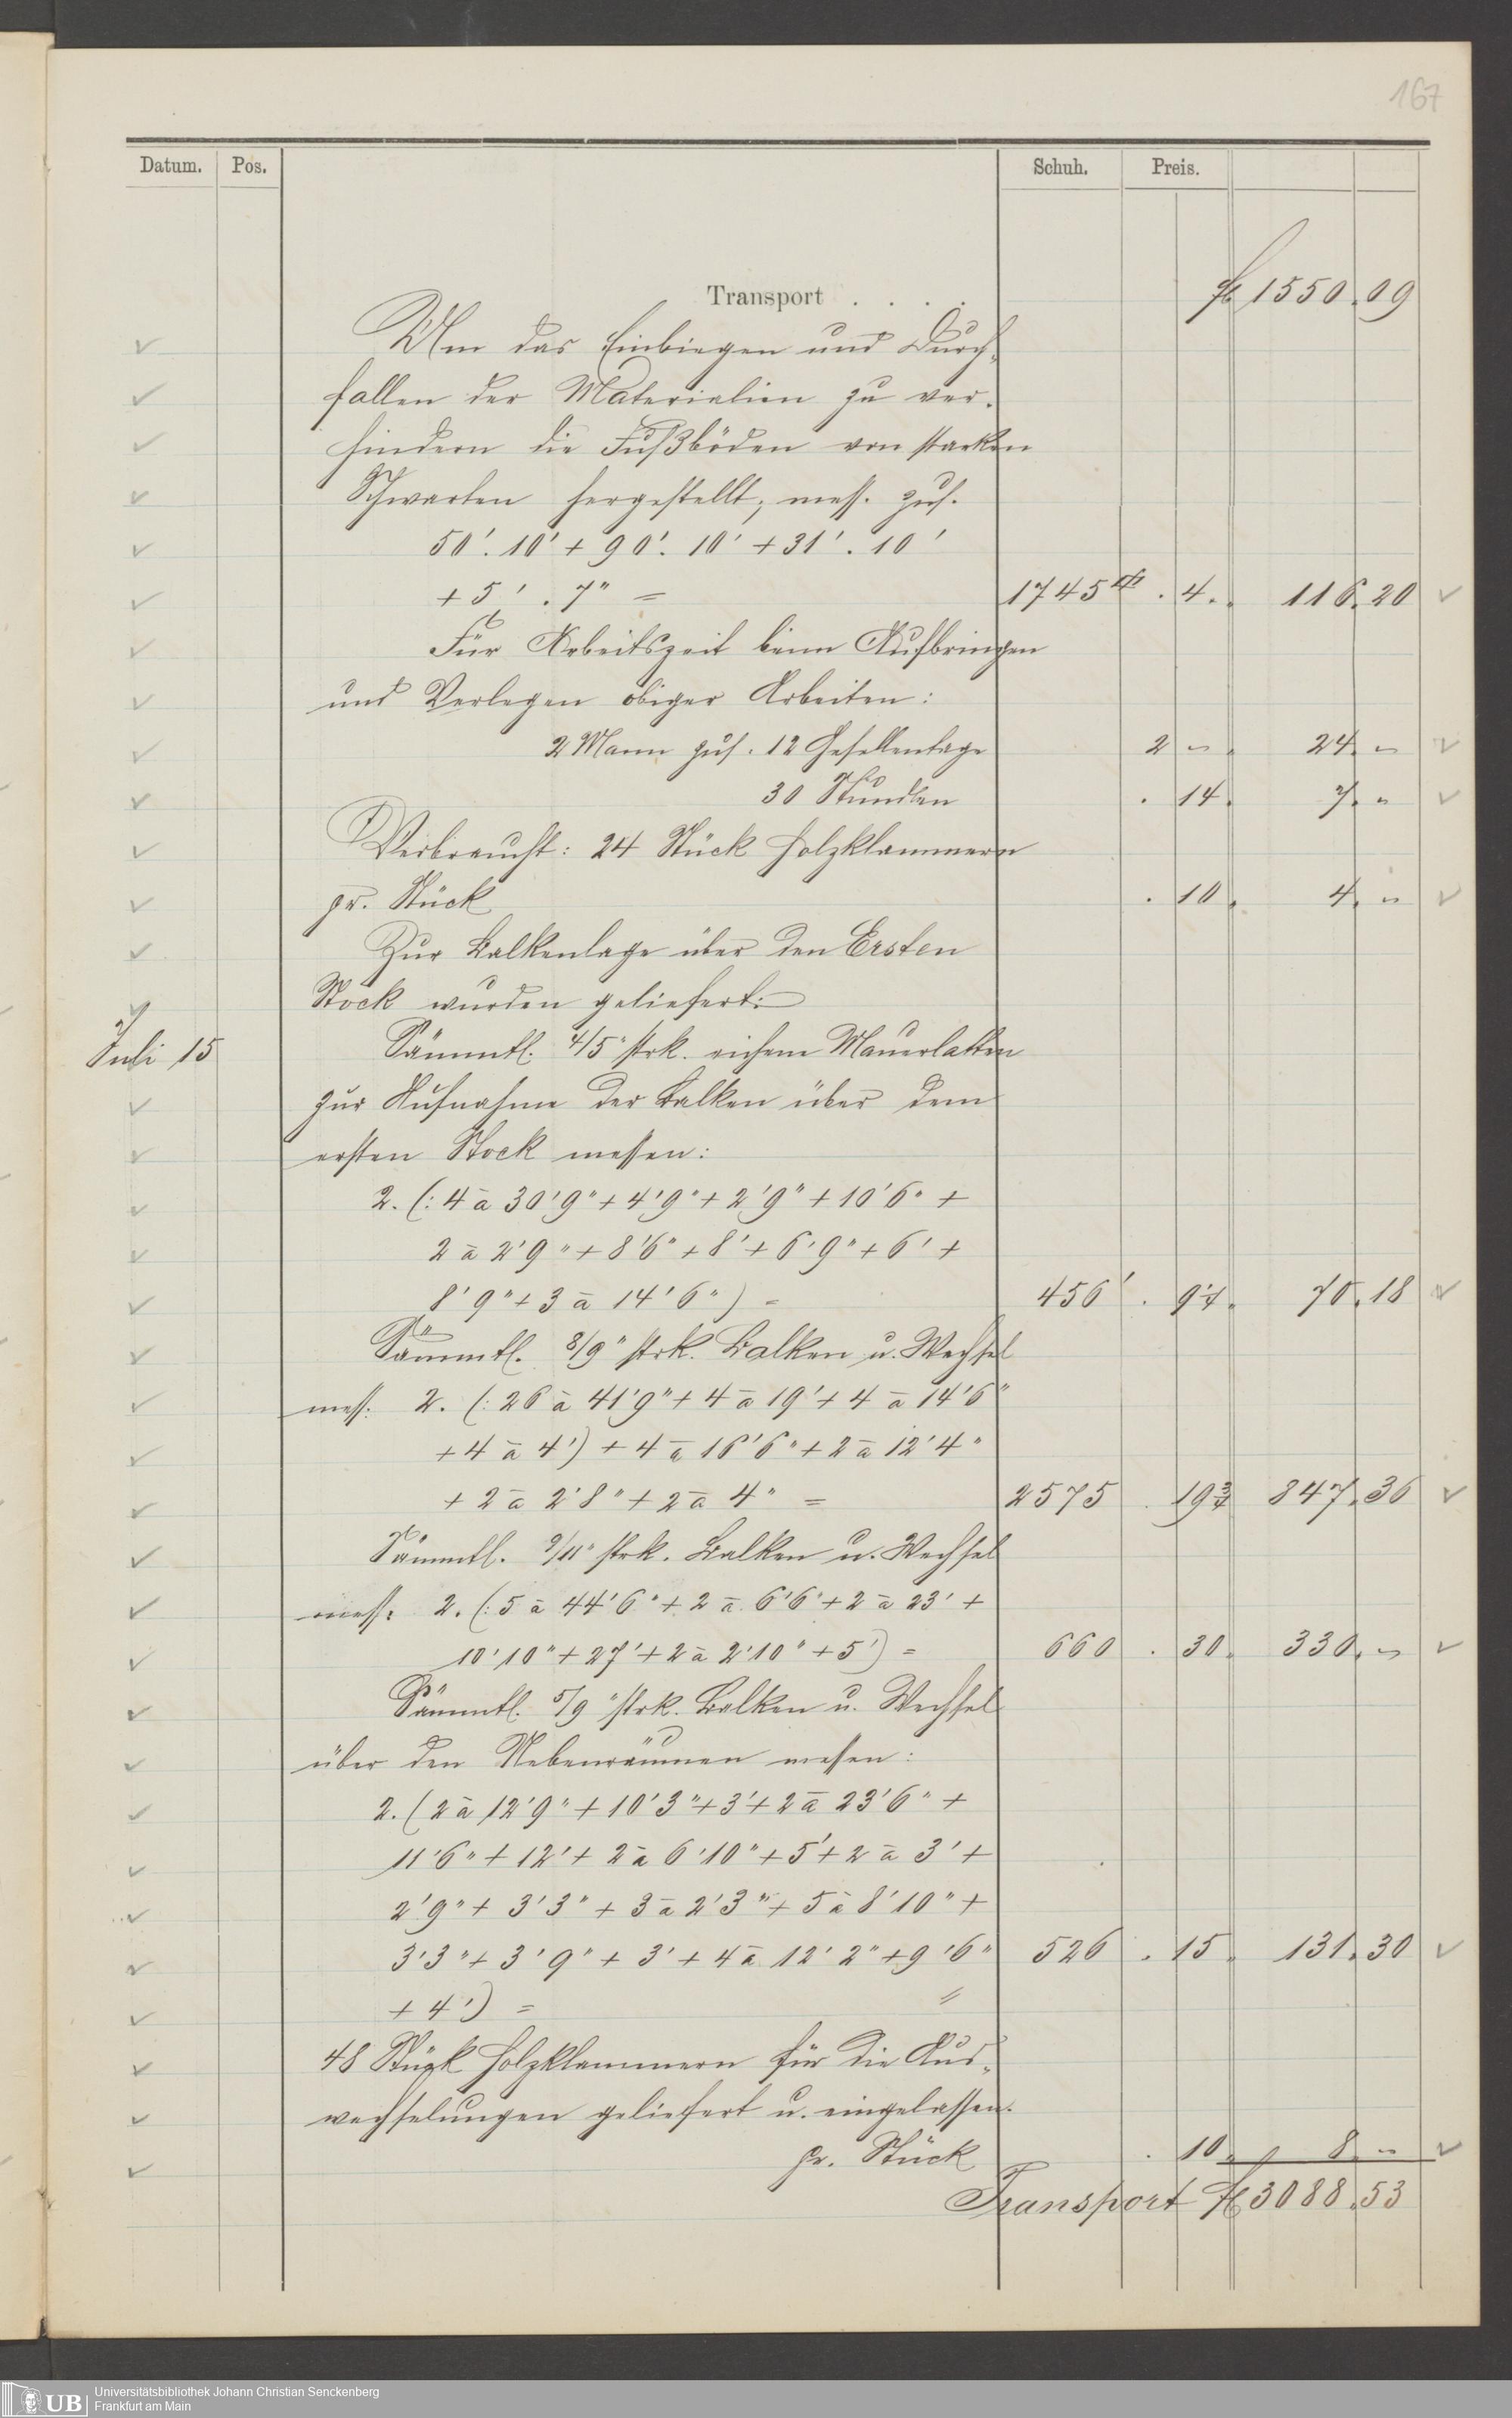 167
Datum. Pos. Schuh. Preis.
Transport . . . . fl 1550.09
Um das Einbiegen und Durch-
fallen der Materialien zu ver-
hindern die Fußböden von starken
Schwarten hergestellt, mess. zus.
50'. 10' + 90'. 10' + 31'. 10'
+ 5'. 7" = 1745 . 4. 116.20
Für Arbeitszeit beim Aufbringen
und Verlegen obiger Arbeiten:
2 Mann zus. 12 Gesellentage 2 – 24. –
30 Stunden . 14. 7. "
Verbraucht: 24 Stück Holzklammern
pr. Stück . 10. 4. "
Zur Balkenlage über den Ersten
Stock wurden geliefert:
Juli 15 Sämmtl. 4/5" strk. eichene Mauerlatten
zur Aufnahme der Balken über dem
ersten Stock messen:
2. (: 4 a 30'9" + 4'9" + 2'9" + 10'6" +
2 a 2'9" + 8'6" + 8' + 6'9" + 6' +
8'9" + 3 a 14'6") = 456' . 70.18
Sämmtl. 8/9" strk. Balken u. Wechsel
mess: 2. (: 26 a 41'9" + 4 a 19' + 4 a 14'6"
+ 4 a 4') + 4 a 16'6" + 2 a 12'4"
+ 2 a 2'8" + 2 a 4" = 2575 . 19¾ 847.36
Sämmtl. 9/11" strk. Balken u. Wechsel
mess: 2. (: 5 a 44'6" + 2 a 6'6" + 2 a 23' +
10'10" + 27' + 2 a 2'10" + 5') = 660 . 30. 330. –
Sämmtl. 5/9" strk. Balken u. Wechsel
über den Nebenräumen messen:
2. (2 a 12'9" + 10'3" + 3' + 2 a 23'6" +
11'6" + 12' + 2 a 6'10" + 5' + 2 a 3' +
2'9" + 3'3" + 3 a 2'3" + 5 a 8'10" +
3'3" + 3'9" + 3' + 4 a 12'2" + 9'6" 526 . 15. 131.30
+ 4') =
48 Stück Holzklammern für die Aus-
wechselungen geliefert u. eingelassen.
pr. Stück . 10. 8. –
Transport fl 3088.53
UB Universitätsbibliothek Johann Christian Senckenberg
Frankfurt am Main